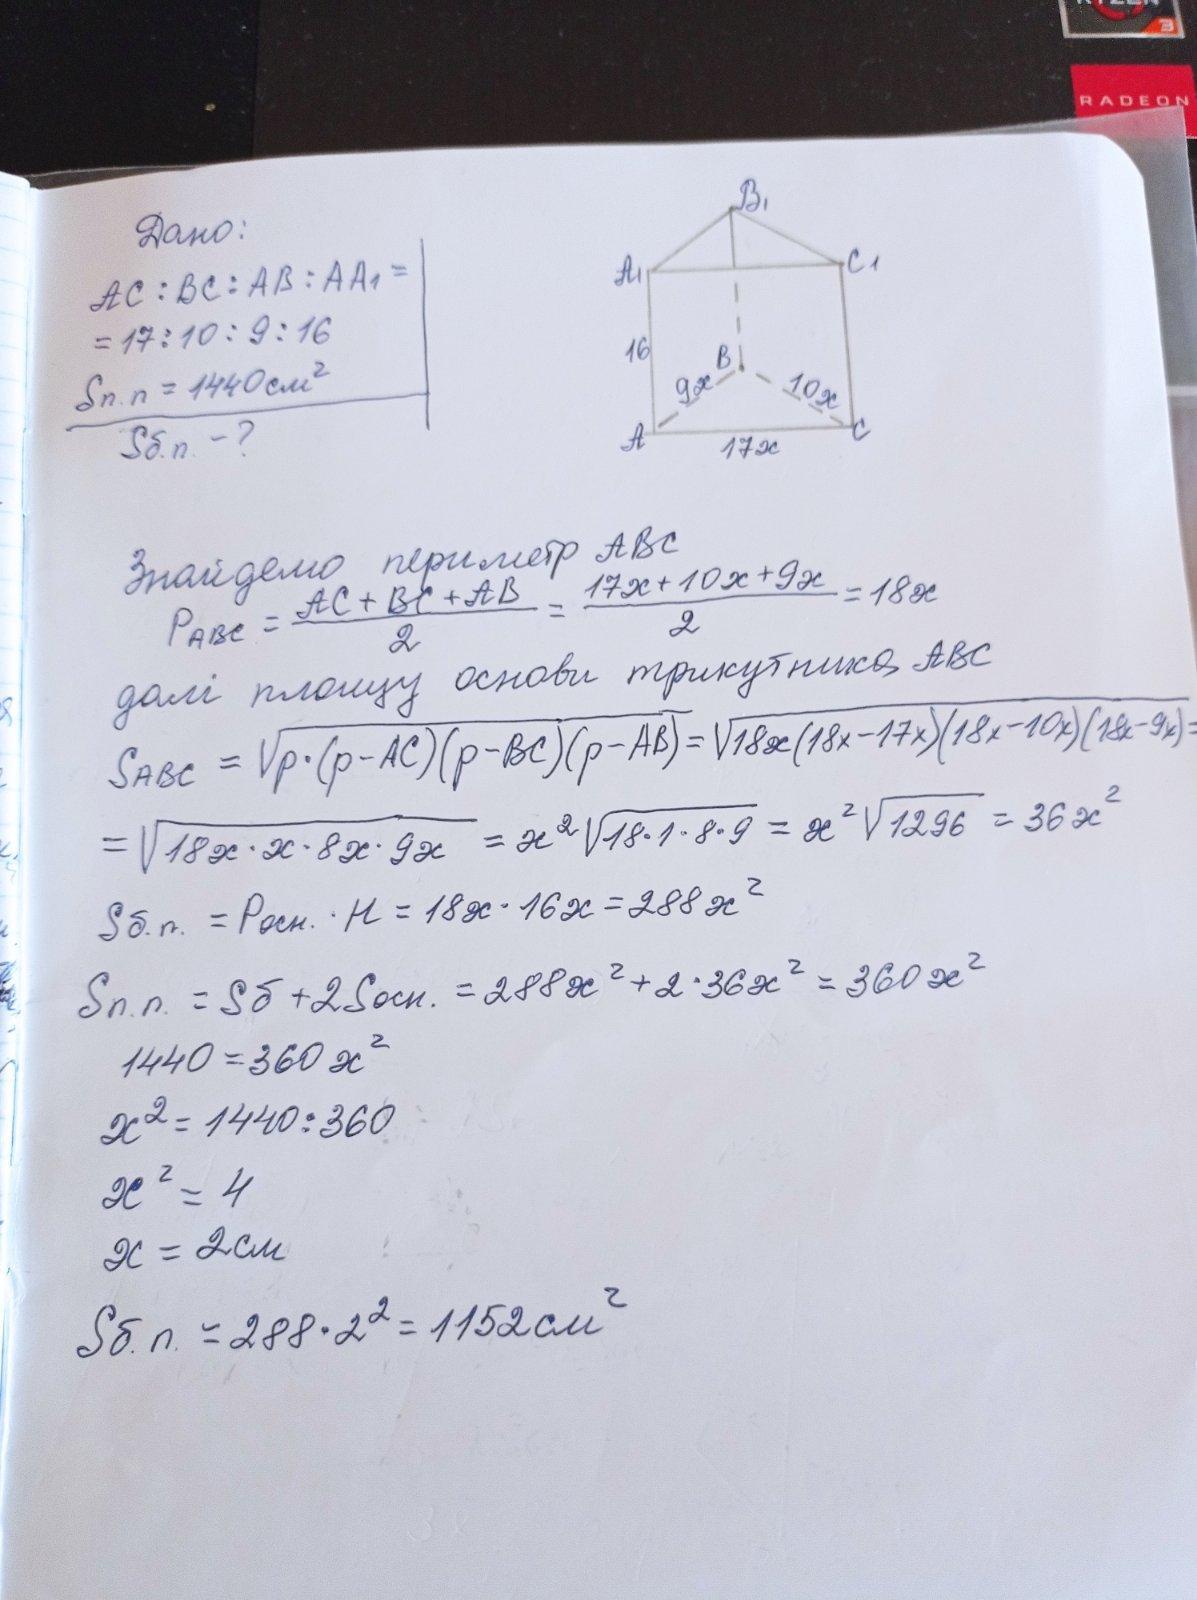 RYZEN
3
RADEON
Дано:
AC : BC : AB : AA₁ =
= 17 : 10 : 9 : 16
Sп.п = 1440 см²
Sб.п. - ?
B₁
A₁
C₁
16
B
9x
10x
A
C
17x
Знайдемо периметр ABC
P_ABC = (AC + BC + AB)/2 = (17x + 10x + 9x)/2 = 18x
далі площу основи трикутника ABC
S_ABC = √(p·(p-AC)(p-BC)(p-AB)) = √(18x(18x-17x)(18x-10x)(18x-9x)) =
= √(18x·x·8x·9x) = x²√(18·1·8·9) = x²√1296 = 36x²
Sб.п. = Pосн. · H = 18x · 16x = 288x²
Sп.п. = Sб + 2Sосн. = 288x² + 2·36x² = 360x²
1440 = 360x²
x² = 1440 : 360
x² = 4
x = 2 см
Sб.п. = 288·2² = 1152 см²